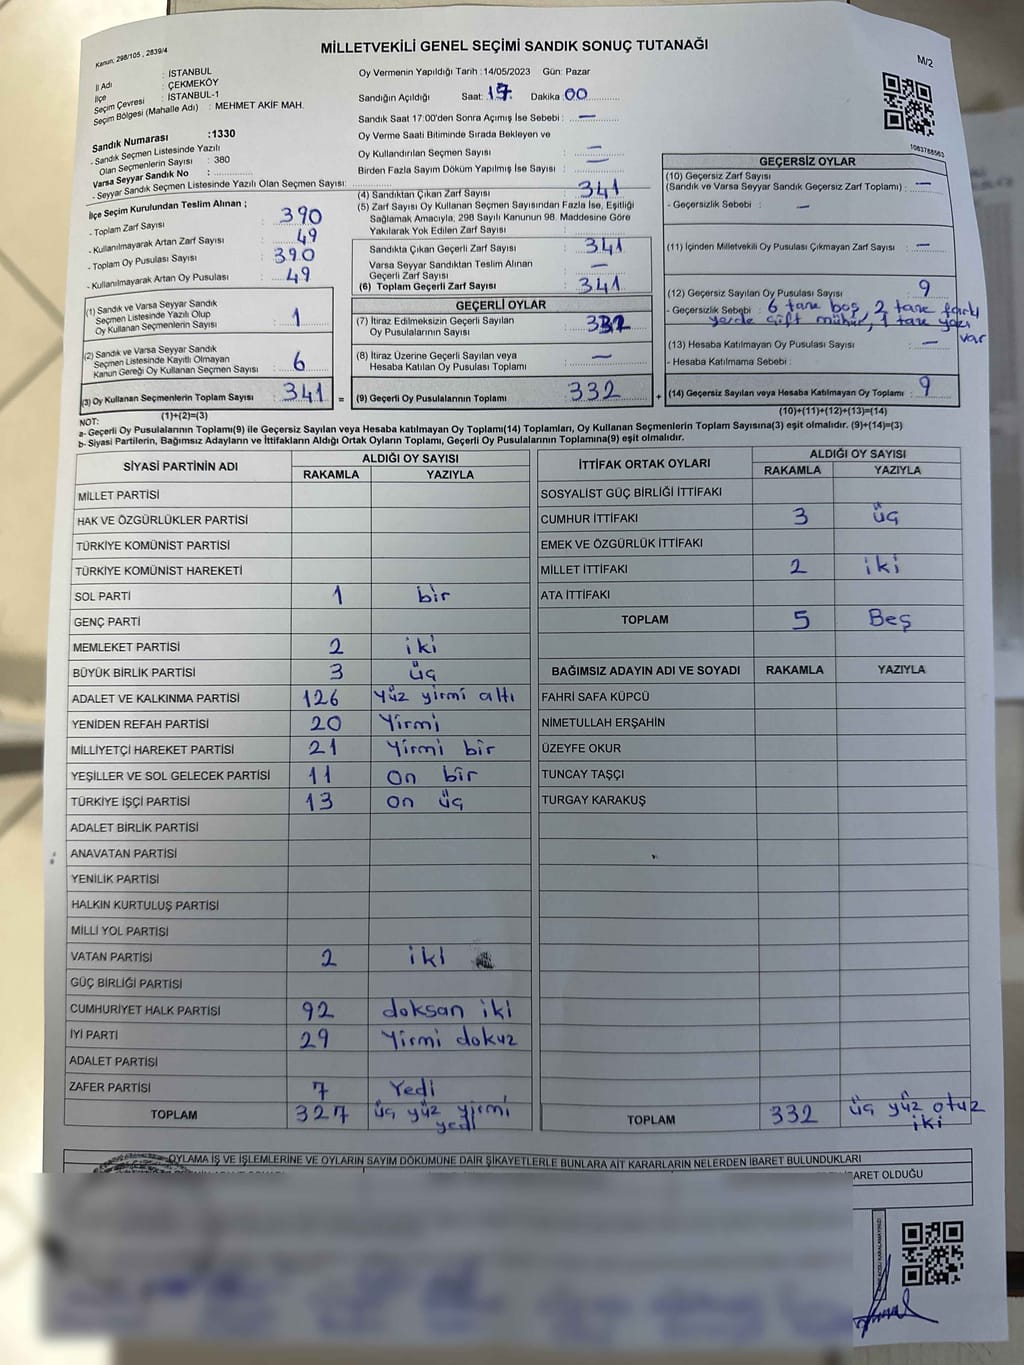 Kanun: 298/105 , 2839/4
MİLLETVEKİLİ GENEL SEÇİMİ SANDIK SONUÇ TUTANAĞI
M/2
İl Adı : İSTANBUL
İlçe : ÇEKMEKÖY
Seçim Çevresi : İSTANBUL-1
Seçim Bölgesi (Mahalle Adı) : MEHMET AKİF MAH.
Sandık Numarası :1330
- Sandık Seçmen Listesinde Yazılı
Olan Seçmenlerin Sayısı : 380
Varsa Seyyar Sandık No :
- Seyyar Sandık Seçmen Listesinde Yazılı Olan Seçmen Sayısı:
İlçe Seçim Kurulundan Teslim Alınan ;
- Toplam Zarf Sayısı : 390
- Kullanılmayarak Artan Zarf Sayısı : 49
- Toplam Oy Pusulası Sayısı : 390
- Kullanılmayarak Artan Oy Pusulası : 49
(1) Sandık ve Varsa Seyyar Sandık
Seçmen Listesinde Yazılı Olup
Oy Kullanan Seçmenlerin Sayısı : 1
(2) Sandık ve Varsa Seyyar Sandık
Seçmen Listesinde Kayıtlı Olmayan
Kanun Gereği Oy Kullanan Seçmen Sayısı : 6
(3) Oy Kullanan Seçmenlerin Toplam Sayısı : 341 =
(1)+(2)=(3)
Oy Vermenin Yapıldığı Tarih :14/05/2023 Gün: Pazar
Sandığın Açıldığı Saat: 17 Dakika 00
Sandık Saat 17:00'den Sonra Açımış İse Sebebi : —
Oy Verme Saati Bitiminde Sırada Bekleyen ve
Oy Kullandırılan Seçmen Sayısı : —
Birden Fazla Sayım Döküm Yapılmış İse Sayısı : —
(4) Sandıktan Çıkan Zarf Sayısı : 341
(5) Zarf Sayısı Oy Kullanan Seçmen Sayısından Fazla İse, Eşitliği
Sağlamak Amacıyla, 298 Sayılı Kanunun 98. Maddesine Göre
Yakılarak Yok Edilen Zarf Sayısı :
Sandıkta Çıkan Geçerli Zarf Sayısı : 341
Varsa Seyyar Sandıktan Teslim Alınan
Geçerli Zarf Sayısı : —
(6) Toplam Geçerli Zarf Sayısı : 341
GEÇERLİ OYLAR
(7) İtiraz Edilmeksizin Geçerli Sayılan
Oy Pusulalarının Sayısı : 332
(8) İtiraz Üzerine Geçerli Sayılan veya
Hesaba Katılan Oy Pusulası Toplamı : —
(9) Geçerli Oy Pusulalarının Toplamı : 332 +
1083788563
GEÇERSİZ OYLAR
(10) Geçersiz Zarf Sayısı
(Sandık ve Varsa Seyyar Sandık Geçersiz Zarf Toplamı) : —
- Geçersizlik Sebebi : —
(11) İçinden Milletvekili Oy Pusulası Çıkmayan Zarf Sayısı : —
(12) Geçersiz Sayılan Oy Pusulası Sayısı : 9
- Geçersizlik Sebebi : 6 tane boş, 2 tane farklı
yerde çift mühür, 1 tane yazı
var
(13) Hesaba Katılmayan Oy Pusulası Sayısı : —
- Hesaba Katılmama Sebebi :
(14) Geçersiz Sayılan veya Hesaba Katılmayan Oy Toplamı : 9
(10)+(11)+(12)+(13)=(14)
NOT:
a- Geçerli Oy Pusulalarının Toplamı(9) ile Geçersiz Sayılan veya Hesaba Katılmayan Oy Toplamı(14) Toplamları, Oy Kullanan Seçmenlerin Toplam Sayısına(3) eşit olmalıdır. (9)+(14)=(3)
b- Siyasi Partilerin, Bağımsız Adayların ve İttifakların Aldığı Ortak Oyların Toplamı, Geçerli Oy Pusulalarının Toplamına(9) eşit olmalıdır.
SİYASİ PARTİNİN ADI ALDIĞI OY SAYISI
RAKAMLA YAZIYLA
MİLLET PARTİSİ
HAK VE ÖZGÜRLÜKLER PARTİSİ
TÜRKİYE KOMÜNİST PARTİSİ
TÜRKİYE KOMÜNİST HAREKETİ
SOL PARTİ 1 bir
GENÇ PARTİ
MEMLEKET PARTİSİ 2 iki
BÜYÜK BİRLİK PARTİSİ 3 üç
ADALET VE KALKINMA PARTİSİ 126 yüz yirmi altı
YENİDEN REFAH PARTİSİ 20 Yirmi
MİLLİYETÇİ HAREKET PARTİSİ 21 Yirmi bir
YEŞİLLER VE SOL GELECEK PARTİSİ 11 On bir
TÜRKİYE İŞÇİ PARTİSİ 13 on üç
ADALET BİRLİK PARTİSİ
ANAVATAN PARTİSİ
YENİLİK PARTİSİ
HALKIN KURTULUŞ PARTİSİ
MİLLİ YOL PARTİSİ
VATAN PARTİSİ 2 iki
GÜÇ BİRLİĞİ PARTİSİ
CUMHURİYET HALK PARTİSİ 92 doksan iki
İYİ PARTİ 29 Yirmi dokuz
ADALET PARTİSİ
ZAFER PARTİSİ 7 Yedi
TOPLAM 327 üç yüz yirmi
yedi
İTTİFAK ORTAK OYLARI ALDIĞI OY SAYISI
RAKAMLA YAZIYLA
SOSYALİST GÜÇ BİRLİĞİ İTTİFAKI
CUMHUR İTTİFAKI 3 üç
EMEK VE ÖZGÜRLÜK İTTİFAKI
MİLLET İTTİFAKI 2 iki
ATA İTTİFAKI
TOPLAM 5 Beş
BAĞIMSIZ ADAYIN ADI VE SOYADI RAKAMLA YAZIYLA
FAHRİ SAFA KÜPCÜ
NİMETULLAH ERŞAHİN
ÜZEYFE OKUR
TUNCAY TAŞÇI
TURGAY KARAKUŞ
TOPLAM 332 üç yüz otuz
iki
OYLAMA İŞ VE İŞLEMLERİNE VE OYLARIN SAYIM DÖKÜMÜNE DAİR ŞİKAYETLERLE BUNLARA AİT KARARLARIN NELERDEN İBARET BULUNDUKLARI
İBARET OLDUĞU